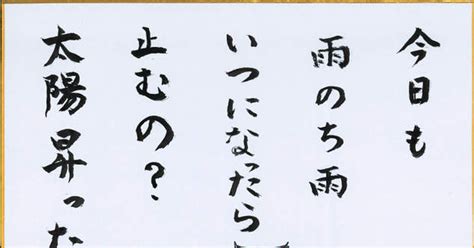 今日も
雨のち雨
いつになったら
止むの？
太陽昇った